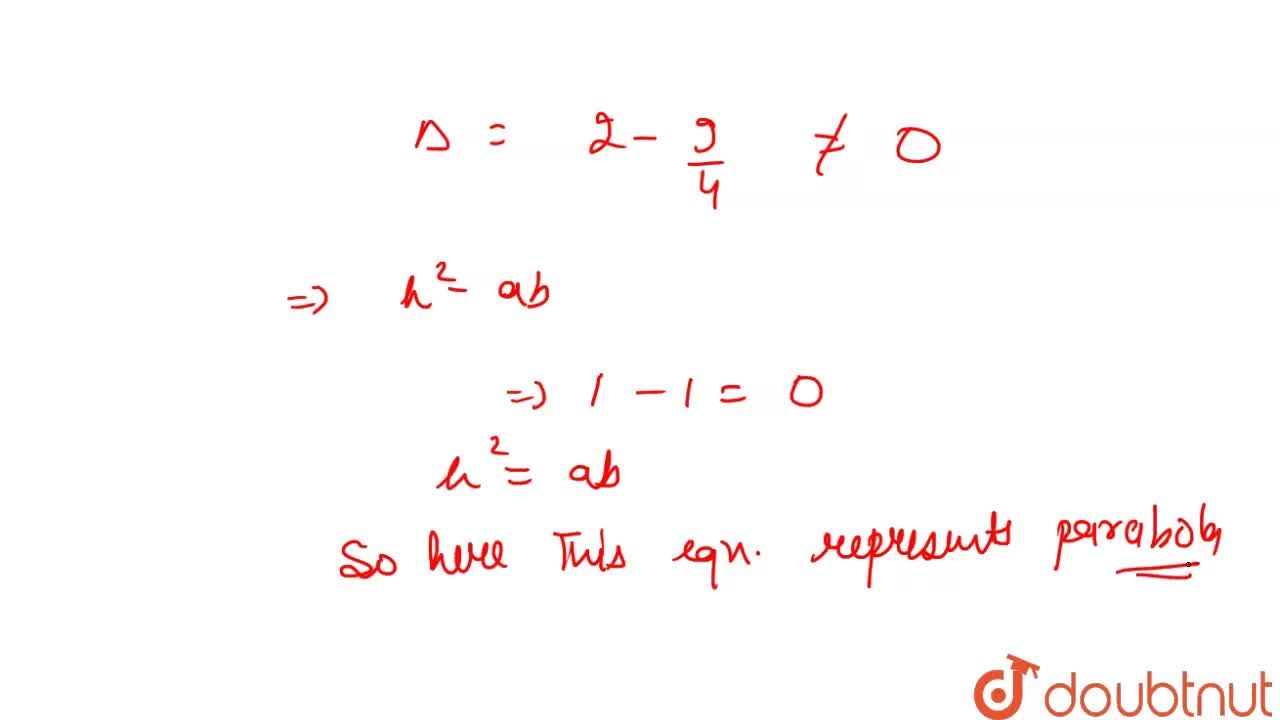 Δ = 2 - 9/4 ≠ 0
=> h² - ab
=> 1 - 1 = 0
h² = ab
So here This eqn. represents parabola
doubtnut